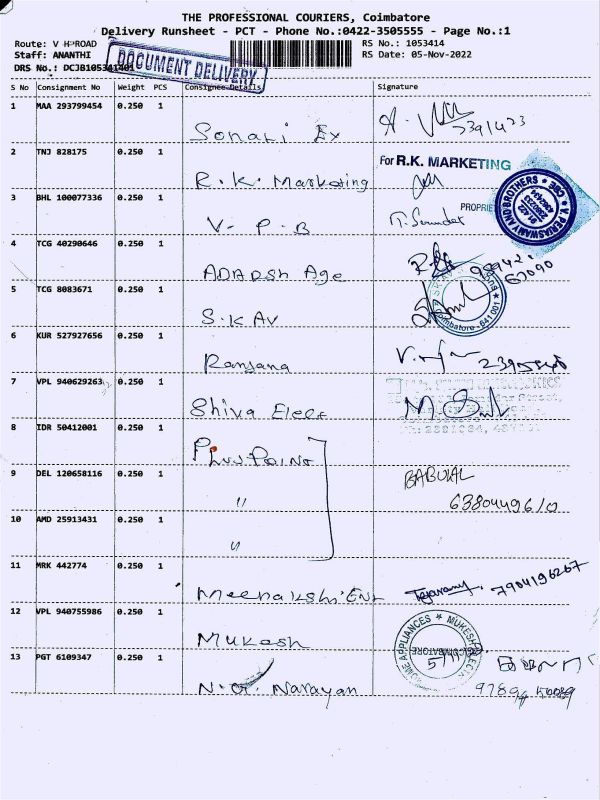 THE PROFESSIONAL COURIERS, Coimbatore
Delivery Runsheet - PCT - Phone No.:0422-3505555 - Page No.:1
Route: V H ROAD
RS No.: 1053414
Staff: ANANTHI
RS Date: 05-Nov-2022
DRS No.: DCJB105341401
DOCUMENT DELIVERY
S No Consignment No Weight PCS Consignee Details Signature
1 MAA 293799454 0.250 1
Sonali Ex
2 TNJ 828175 0.250 1
R.K. Marketing
For R.K. MARKETING
3 BHL 100077336 0.250 1
V- P.B
PROPRIE
V. PERIASWAMY AND BROTHERS CBE
4 TCG 40290646 0.250 1
ADARSH Age
5 TCG 8083671 0.250 1
S.KAV
Coimbatore-641 001
6 KUR 527927656 0.250 1
Ranjana
7 VPL 940629263 0.250 1
Shiva Elect
8 IDR 50412001 0.250 1
Plus Point
9 DEL 120658116 0.250 1
"
BABULAL
6380449610
10 AMD 25913431 0.250 1
"
11 MRK 442774 0.250 1
Meenakshi Ent
7904196267
12 VPL 940755986 0.250 1
Mukash
HOME APPLIANCES MUKESH ELECT
COIMBATORE
13 PGT 6109347 0.250 1
N.G. Narayan